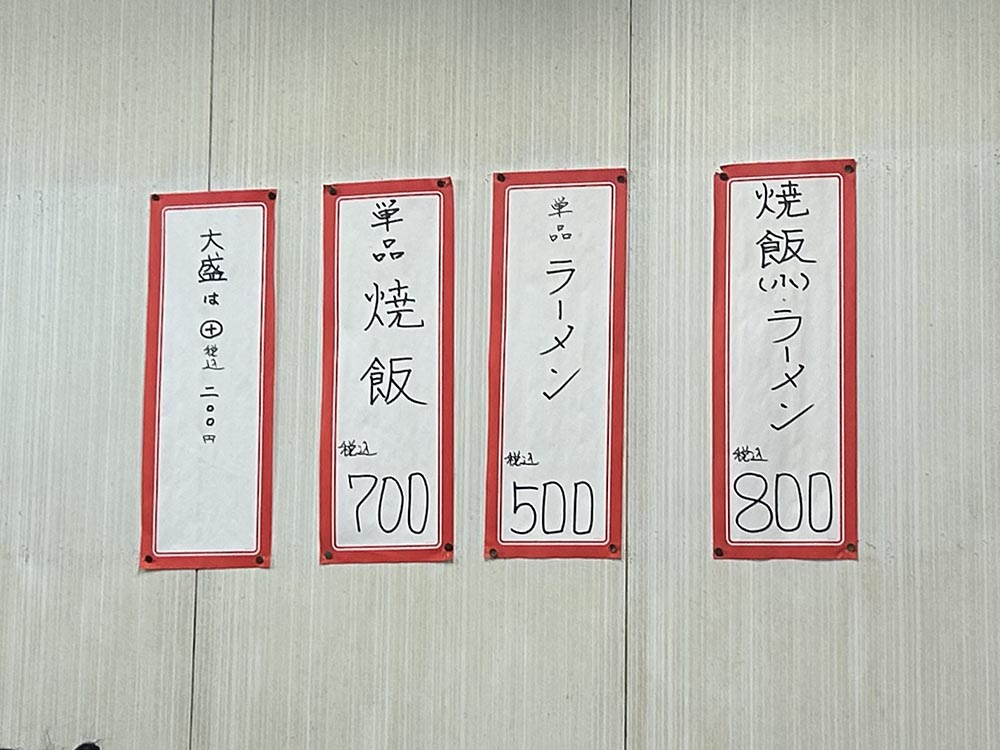 焼飯(小)・ラーメン
税込
800
単品ラーメン
税込
500
単品焼飯
税込
700
大盛は⊕税込二〇〇円